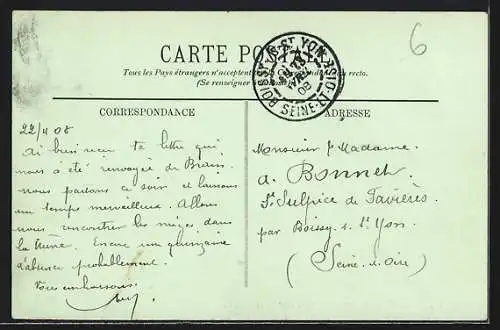 6
CARTE POSTALE
Tous les Pays étrangers n'acceptent la Correspondance au recto.
(Se renseigner
BOISSY-S-ST YON SEINE-ET-OISE
23
08
CORRESPONDANCE
ADRESSE
22/4 08
Ai bien reçu ta lettre qui
nous a été renvoyée de
nous partons ce soir et laissons
un temps merveilleux. Allons
nous rencontrer les neiges dans
la Encore une quinzaine
d'absence probablement.
embrassons
Monsieur & Madame
A. Bonnet
St Sulpice de Favières
par Boissy s. St Yon
(Seine et Oise)